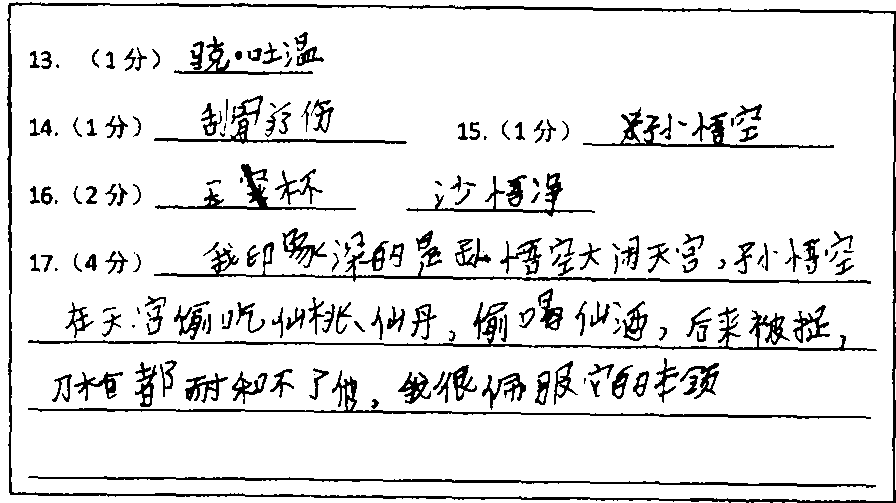 13. （1分）骁·吐温
14.（1分）刮骨疗伤 15.（1分）孙悟空
16.（2分）玉 杯 沙悟净
17.（4分）我印象深的是孙悟空大闹天宫，孙悟空
在天宫偷吃仙桃、仙丹，偷喝仙酒，后来被捉，
都耐和不了他，我很佩服它的本领